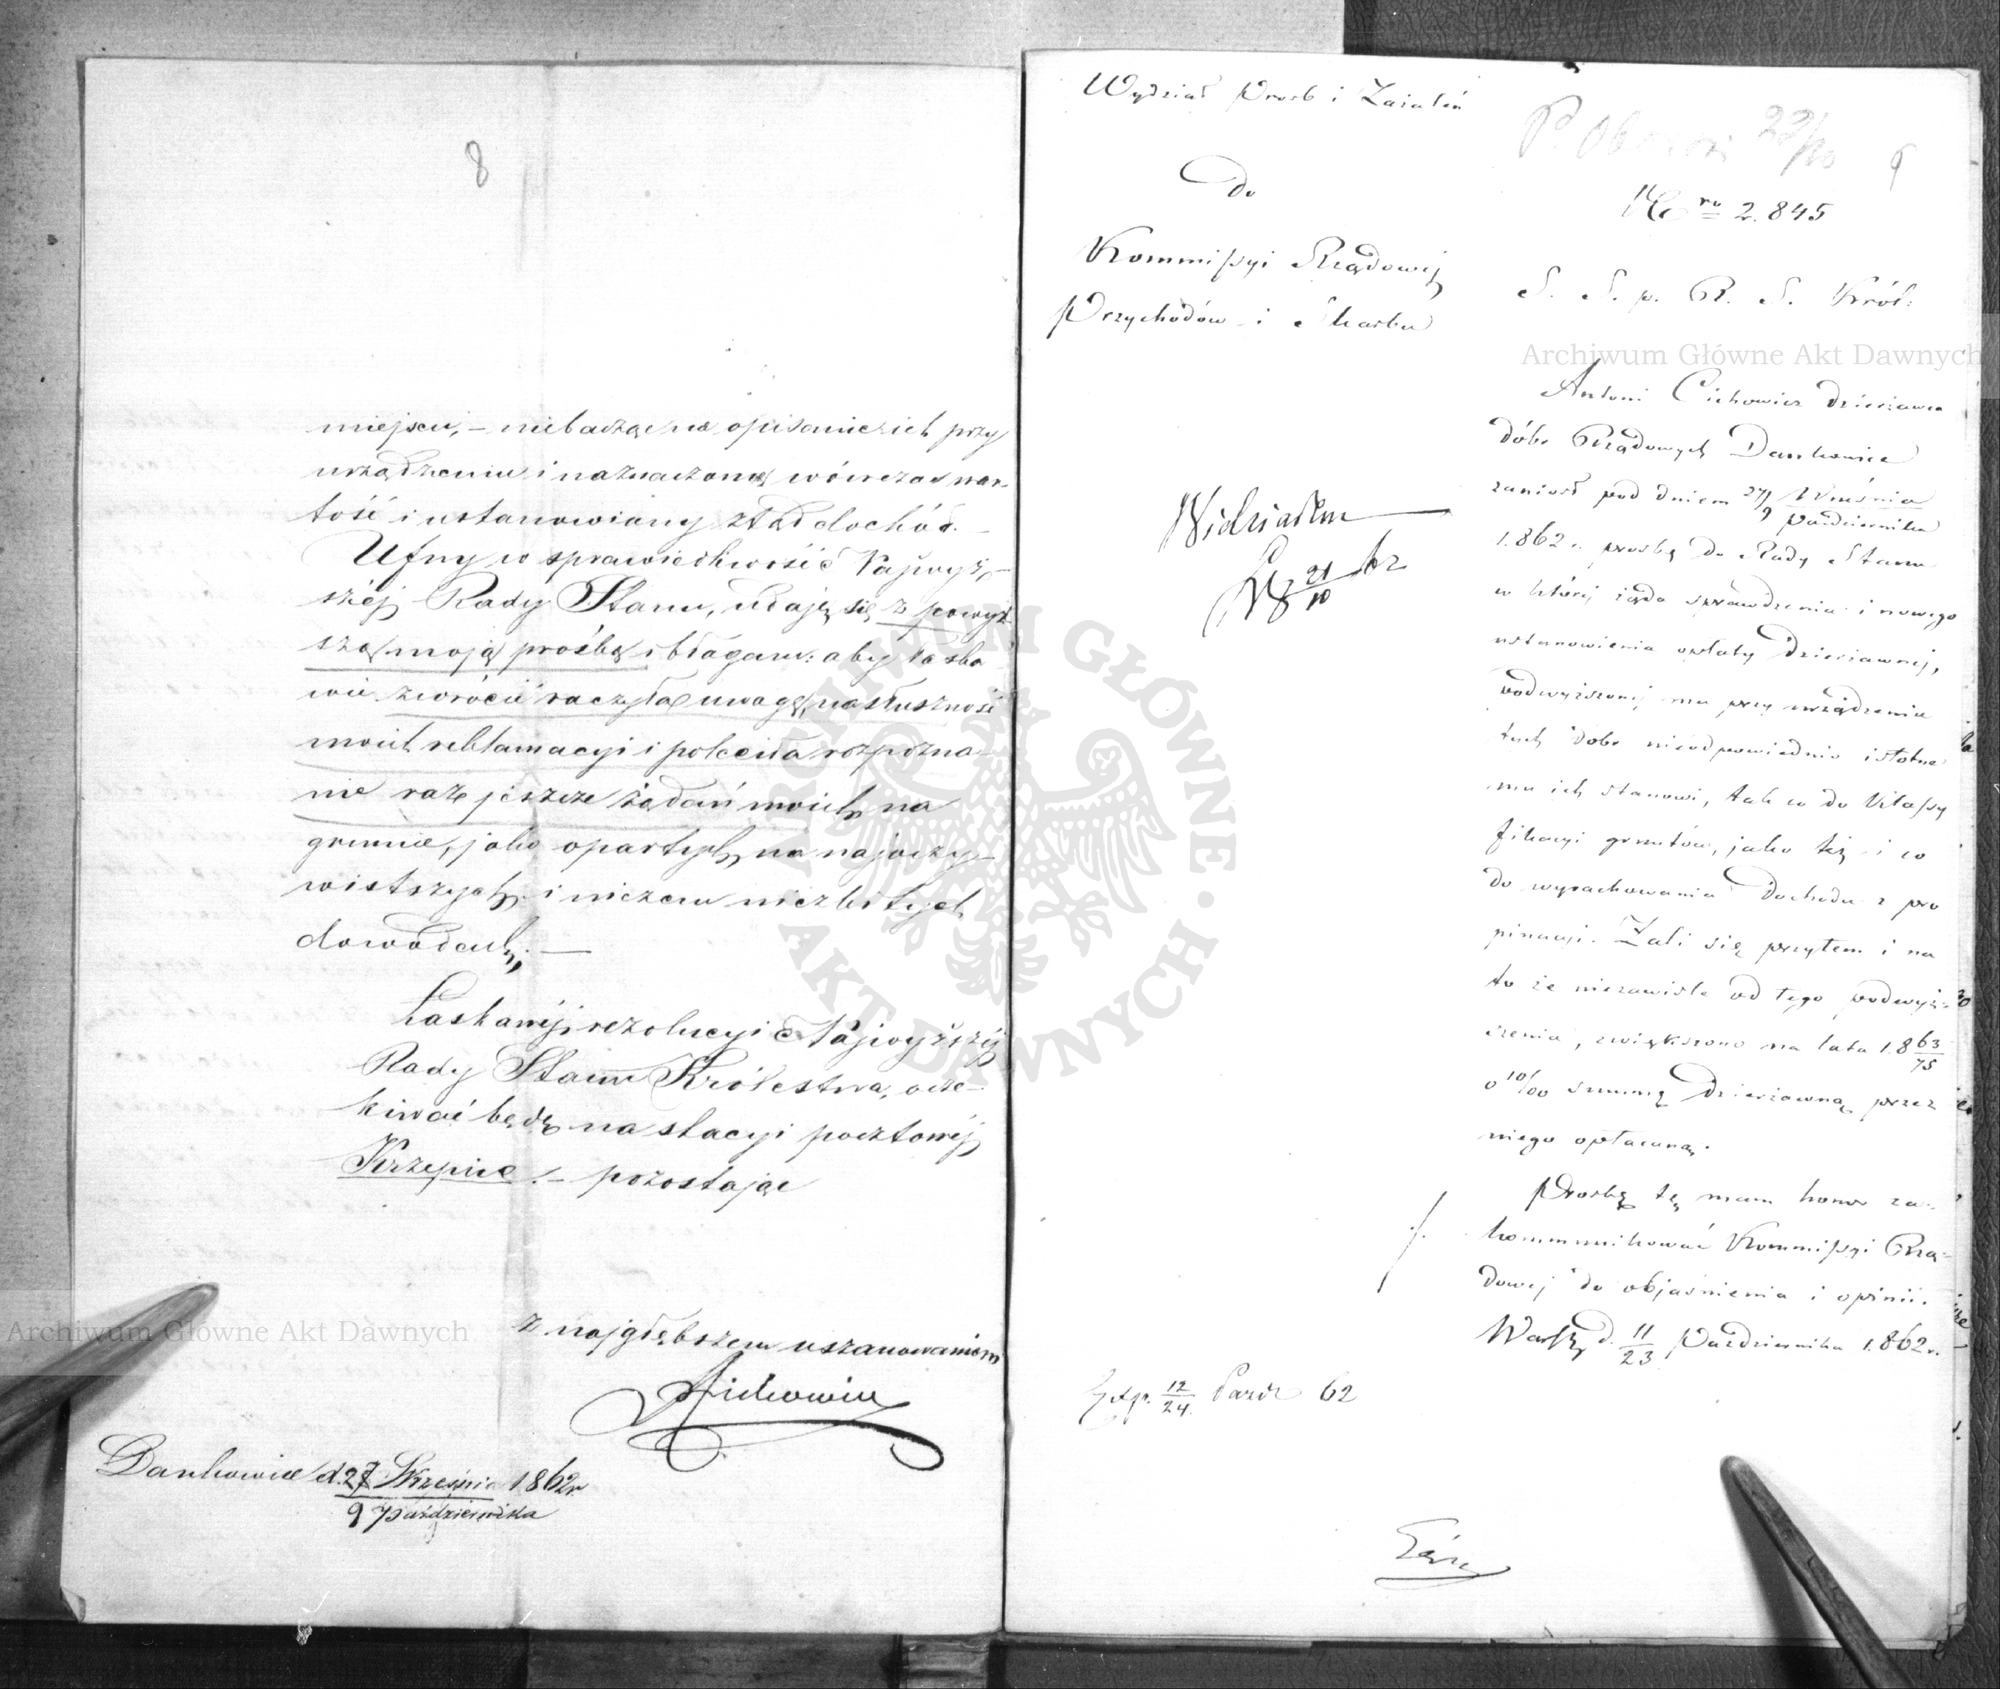 8
miejscu, – niebacząc na opisanie ich przy
urządzeniu i naznaczoną wówczas war-
tość i ustanowiony ztąd dochód. –
Ufny w sprawiedliwość Najwyż-
széj Rady Stanu, udaję się z powyż
szą moją prośbą i błagam: aby łaska
wie zwrócić raczyła uwagę, na słuszność
moich reklamacyi i poleciła rozpozna-
nie raz jeszcze żądań moich, na
gruncie, jako opartych, na najoczy-
wistszych, i niczem niezbitych
dowodach; –
Łaskawéj rezolucyi Najwyższéj
Rady Stanu Królestwa, ocze-
kiwać będę na stacyi pocztowéj
Krzepice. – pozostając
z najgłębszem uszanowaniem
ACichowicz
Dankowice d. 27 Września 1862r
9 Października
Wydział Prosb i Zażaleń
P. 22/10
9
Do
Nro 2.845
Kommissyi Rządowej
Przychodów i Skarbu
S. S. p. R. S. Król:
Antoni Cichowicz dzierżawca
dóbr Rządowych Dankowice
zaniosł pod dniem 27/9 Września
Października
1.862 r. prosbę do Rady Stanu
w której żąda sprawdzenia i nowego
ustanowienia opłaty dzierżawnej,
podwyższonej mu przy urządzeniu
tych dobr nieodpowiednio istotne
mu ich stanowi, tak co do Klassy
fikacyi gruntów, jako też i co
do wyrachowania dochodu z pro
pinacyi. Żali się przytem i na
to że niezawiśle od tego podwyż-
szenia, zwiększono na lata 1.863/75
o 10/00 summę dzierżawną przez
niego opłacaną.
Prosbę tę mam honor za-
kommunikować Kommissyi Rzą-
dowej do objaśnienia i opinii.
Warsz. d. 11/23 Października 1.862 r.
Widziałem
21/10 62
Exp. 12/24 Paźdz 62